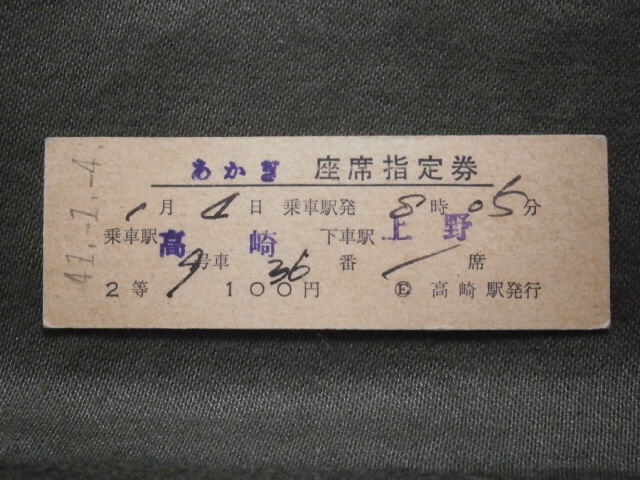 41.-1.-4.
あかぎ 座席指定券
1月4日 乗車駅発 8時05分
乗車駅 高崎 下車駅 上野
9号車 36番 1席
2等 100円 Ⓔ 高崎駅発行